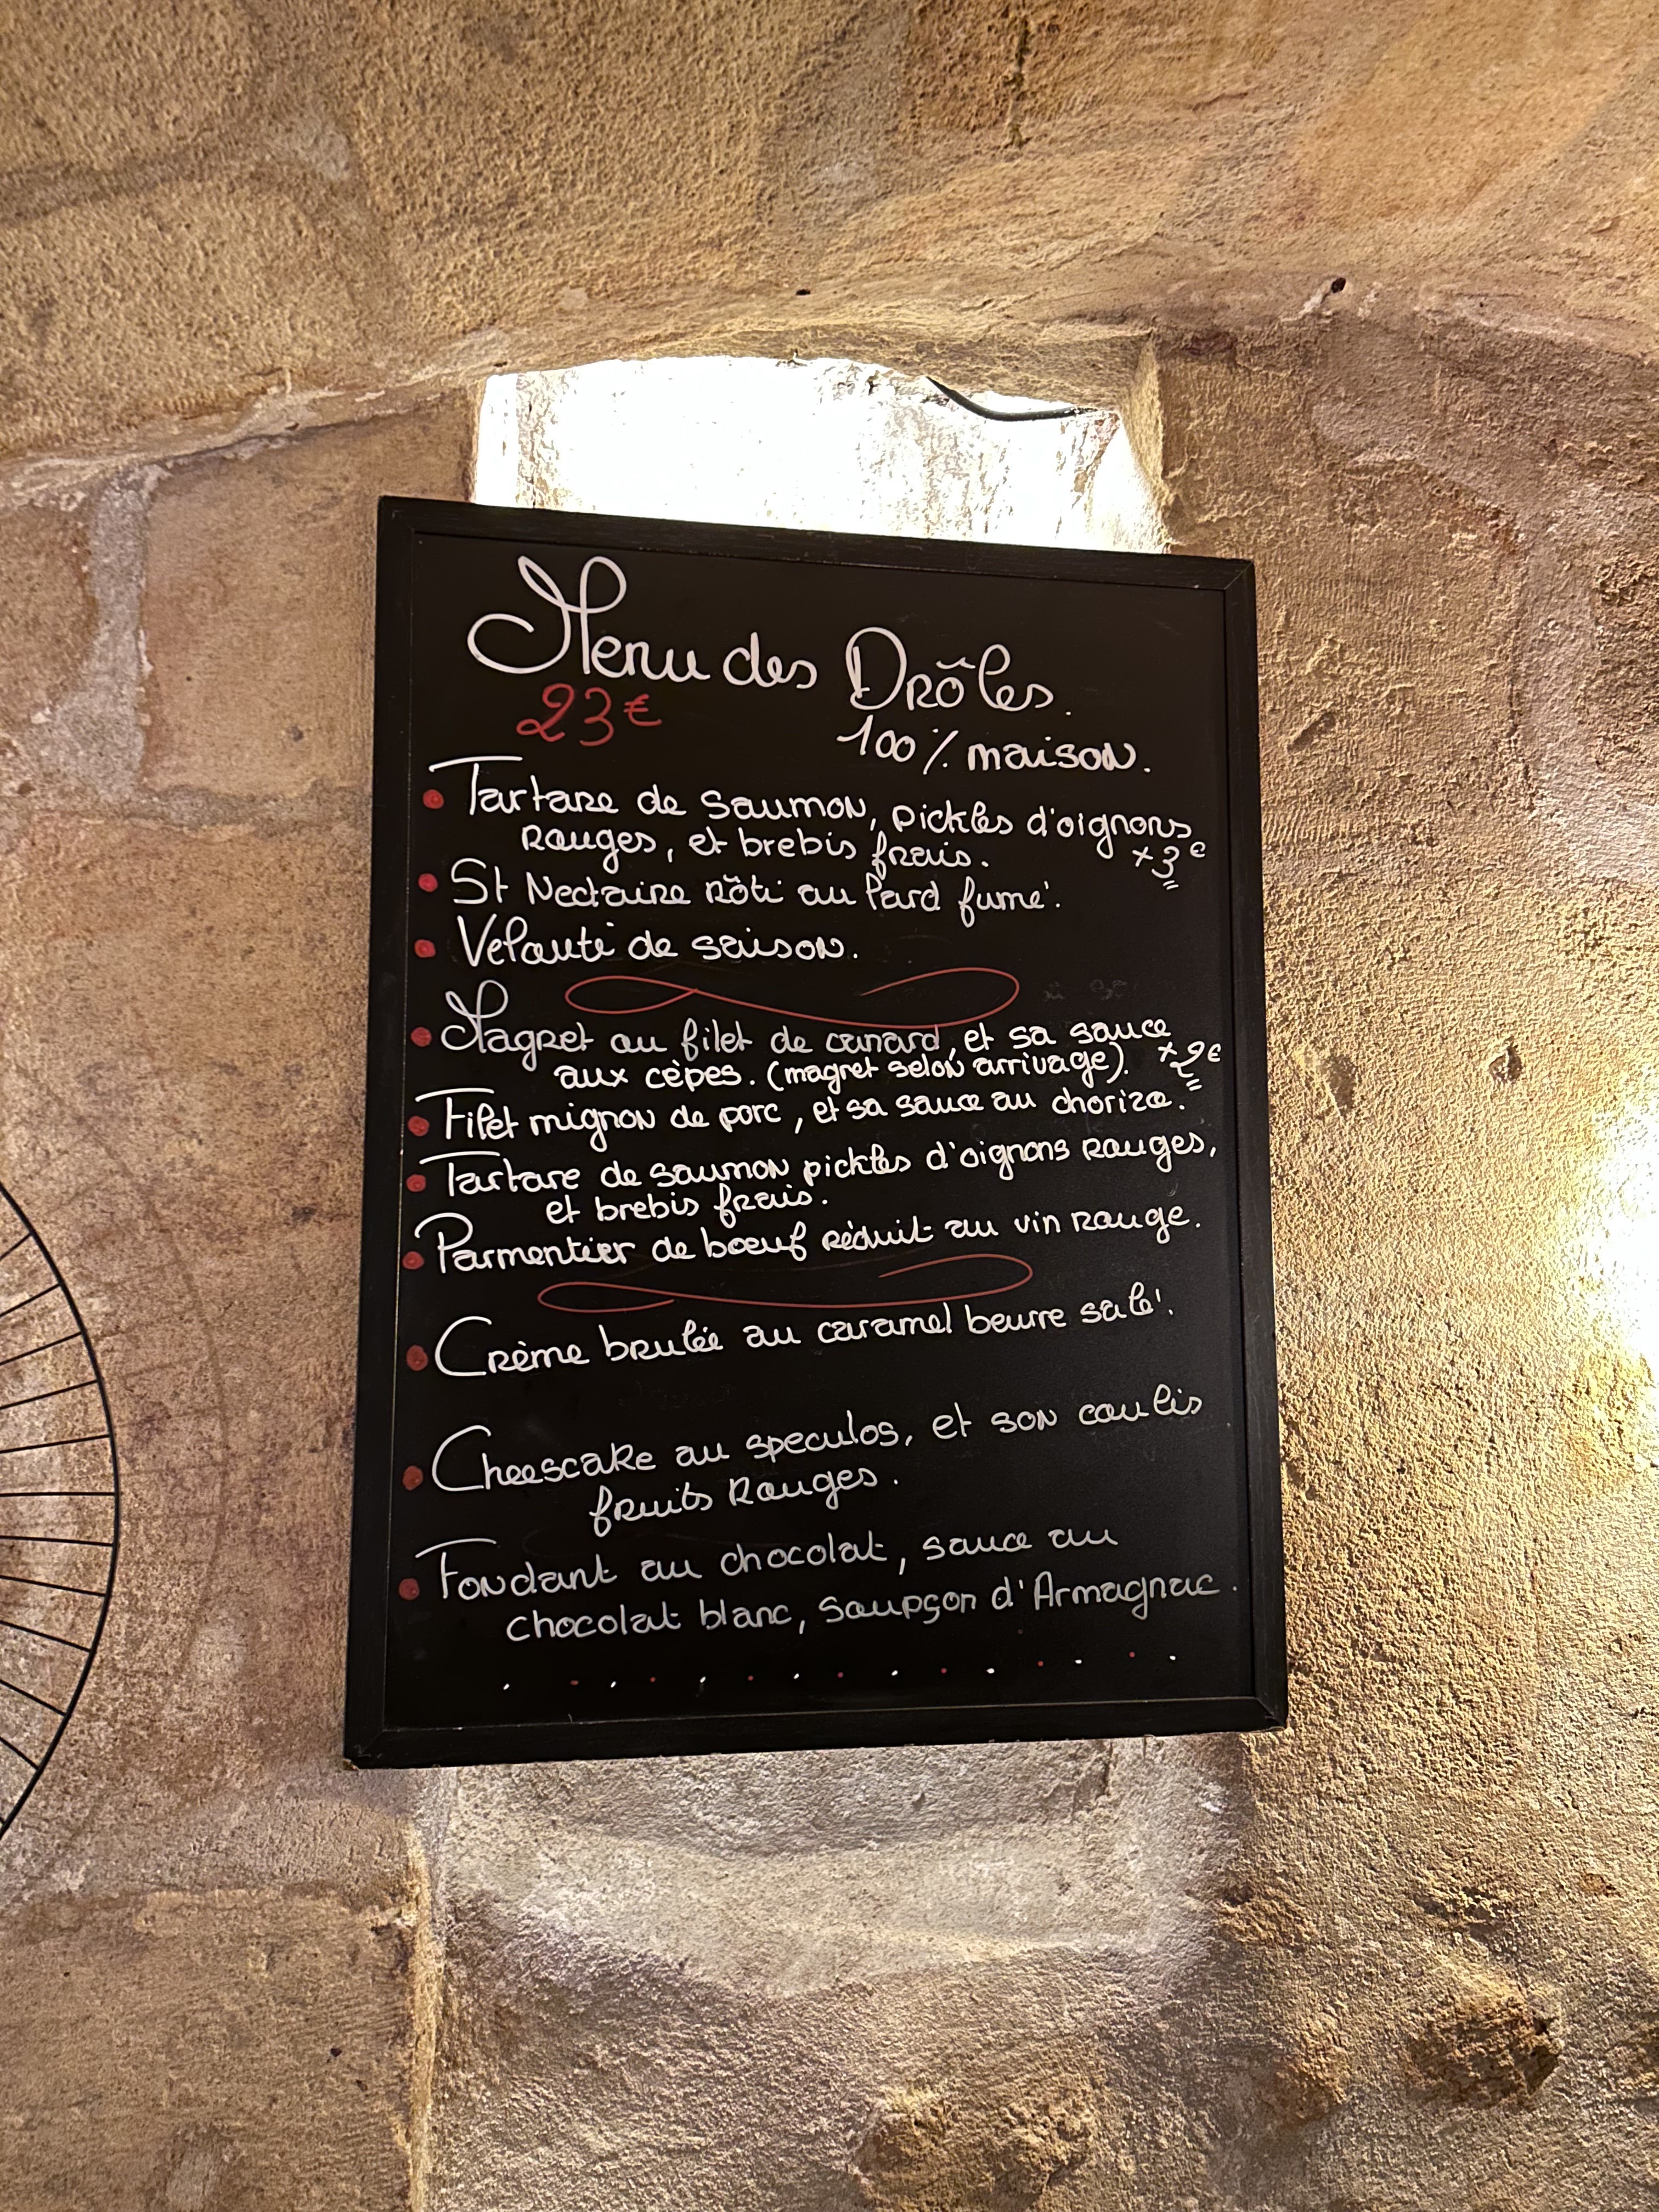 Menu des Drôles.
23€
100% maison.
• Tartare de saumon, pickles d'oignons
rouges, et brebis frais. +3€
• St Nectaire rôti au lard fumé.
• Velouté de saison.
• Magret ou filet de canard, et sa sauce
aux cèpes. (magret selon arrivage). +2€
• Filet mignon de porc, et sa sauce au chorizo.
• Tartare de saumon pickles d'oignons rouges,
et brebis frais.
• Parmentier de bœuf réduit au vin rouge.
• Crème brulée au caramel beurre salé.
• Cheescake au speculos, et son coulis
fruits rouges.
• Fondant au chocolat, sauce au
chocolat blanc, soupçon d'Armagnac.